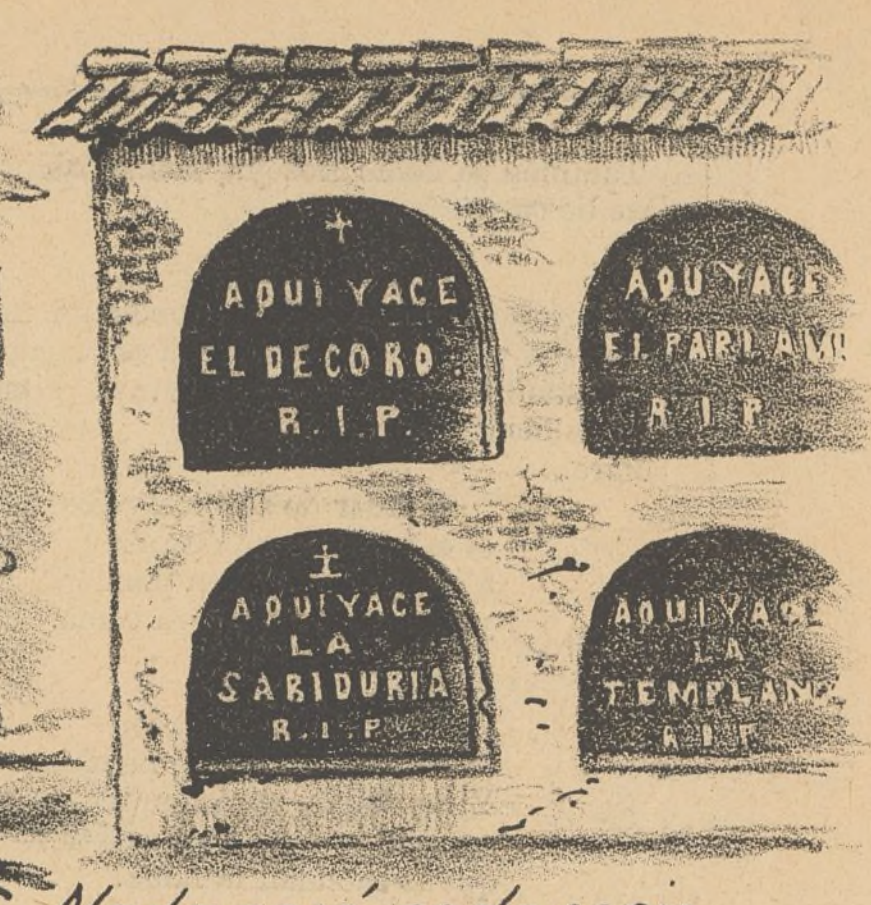 AQUI YACE
EL DECORO.
R.I.P.
AQU YACE
EL PARLAM
R I P
AQUI YACE
LA
SABIDURIA
R.I.P
AQUI YACE
LA
TEMPLANZ
R I P